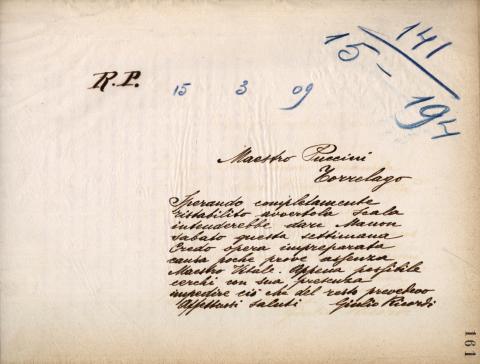 141
15 - 194
R.P. 15 3 09
Maestro Puccini
Torrelago
Sperando completamente
ristabilito avvertola Scala
intenderebbe dare Manon
sabato questa settimana
Credo opera impreparata
causa poche prove assenza
Maestro Vitale. Appena possibile
cerchi con sua presenza
impedire ciò che del resto prevedevo
Affettuosi saluti Giulio Ricordi
161